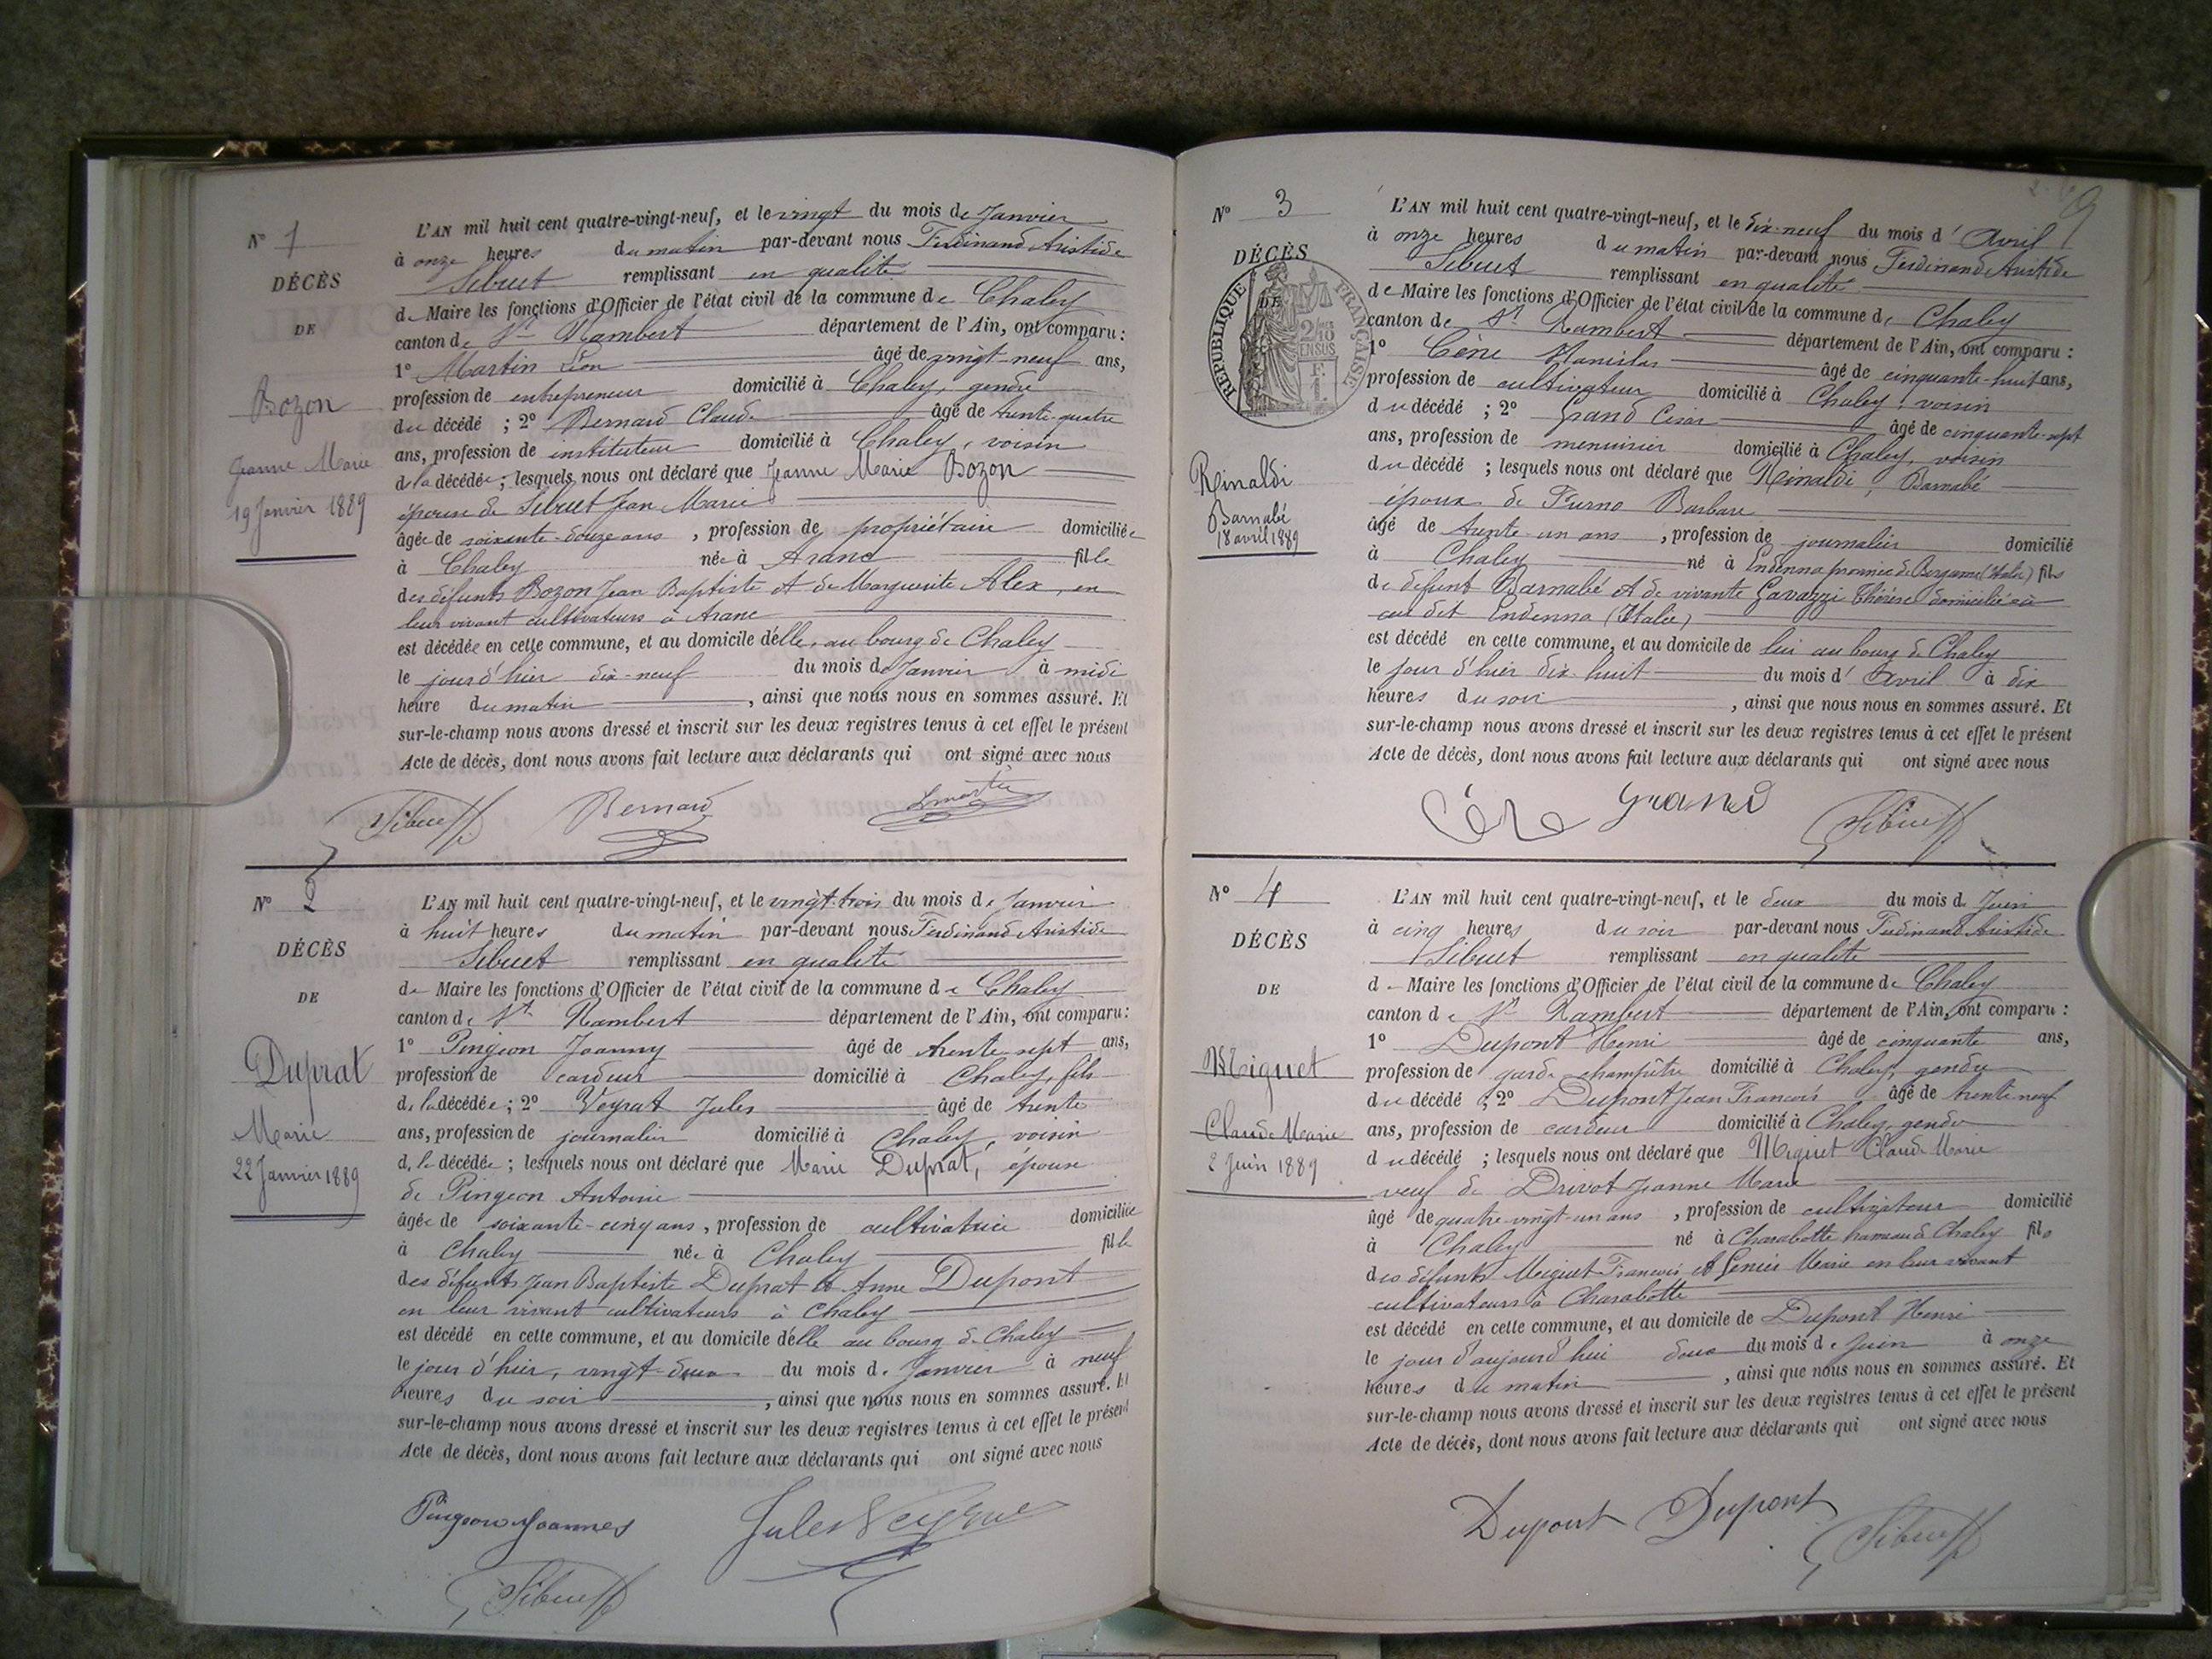 N° 1
DÉCÈS
DE
Bozon
Jeanne Marie
19 Janvier 1889
L'AN mil huit cent quatre-vingt-neuf, et le vingt du mois de Janvier
à onze heures du matin par-devant nous Ferdinand Aristide
Sibuet remplissant en qualité
de Maire les fonctions d'Officier de l'état civil de la commune de Chaley
canton de St Rambert département de l'Ain, ont comparu :
1° Martin Léon âgé de vingt-neuf ans,
profession de entrepreneur domicilié à Chaley, gendre
du décédé ; 2° Bernard Claude âgé de trente-quatre
ans, profession de instituteur domicilié à Chaley, voisin
de la décédée ; lesquels nous ont déclaré que Jeanne Marie Bozon
épouse de Sibuet Jean Marie
âgée de soixante-douze ans, profession de propriétaire domiciliée
à Chaley née à Aranc fille
des défunts Bozon Jean Baptiste et de Marguerite Alex, en
leur vivant cultivateurs à Aranc
est décédée en cette commune, et au domicile d'elle, au bourg de Chaley
le jour d'hier dix-neuf du mois de Janvier à midi
heure du matin, ainsi que nous nous en sommes assuré. Et
sur-le-champ nous avons dressé et inscrit sur les deux registres tenus à cet effet le présent
Acte de décès, dont nous avons fait lecture aux déclarants qui ont signé avec nous
Sibuet Bernard Lmartin
N° 2
DÉCÈS
DE
Duprat
Marie
22 Janvier 1889
L'AN mil huit cent quatre-vingt-neuf, et le vingt-trois du mois de Janvier
à huit heures du matin par-devant nous Ferdinand Aristide
Sibuet remplissant en qualité
de Maire les fonctions d'Officier de l'état civil de la commune de Chaley
canton de St Rambert département de l'Ain, ont comparu :
1° Pingeon Joanny âgé de trente-sept ans,
profession de cardeur domicilié à Chaley, fils
de la décédée ; 2° Veyrat Jules âgé de trente
ans, profession de journalier domicilié à Chaley, voisin
d. la décédée ; lesquels nous ont déclaré que Marie Duprat, épouse
de Pingeon Antoine
âgée de soixante-cinq ans, profession de cultivatrice domiciliée
à Chaley née à Chaley fille
des défunts Jean Baptiste Duprat et Anne Dupont
en leur vivant cultivateurs à Chaley
est décédé en cette commune, et au domicile d'elle au bourg de Chaley
le jour d'hier, vingt-deux du mois de Janvier à neuf
heures du soir, ainsi que nous nous en sommes assuré. Et
sur-le-champ nous avons dressé et inscrit sur les deux registres tenus à cet effet le présent
Acte de décès, dont nous avons fait lecture aux déclarants qui ont signé avec nous
Pingeon Joannes Jules
Sibuet
9
N° 3
DÉCÈS
DE
REPUBLIQUE FRANÇAISE
2/10
EN SUS
F.
1.
Rinaldi
Barnabé
18 avril 1889
L'AN mil huit cent quatre-vingt-neuf, et le dix-neuf du mois d'Avril
à onze heures du matin par-devant nous Ferdinand Aristide
Sibuet remplissant en qualité
de Maire les fonctions d'Officier de l'état civil de la commune de Chaley
canton de St Rambert département de l'Ain, ont comparu :
1° Cène Stanislas âgé de cinquante-huit ans,
profession de cultivateur domicilié à Chaley, voisin
du décédé ; 2° Grand César âgé de cinquante-sept
ans, profession de menuisier domicilié à Chaley, voisin
du décédé ; lesquels nous ont déclaré que Rinaldi, Barnabé
époux de Furno Barbare
âgé de trente un ans, profession de journalier domicilié
à Chaley né à Endenna province de Bergame (Italie) fils
de défunt Barnabé et de vivante Gavazzi Thérèse domiciliée
au dit Endenna (Italie)
est décédé en cette commune, et au domicile de lui au bourg de Chaley
le jour d'hier dix-huit du mois d'Avril à dix
heures du soir, ainsi que nous nous en sommes assuré. Et
sur-le-champ nous avons dressé et inscrit sur les deux registres tenus à cet effet le présent
Acte de décès, dont nous avons fait lecture aux déclarants qui ont signé avec nous
Cène Grand Sibuet
N° 4
DÉCÈS
DE
Miguet
Claude Marie
2 Juin 1889
L'AN mil huit cent quatre-vingt-neuf, et le deux du mois de Juin
à cinq heures du soir par-devant nous Ferdinand Aristide
Sibuet remplissant en qualité
de Maire les fonctions d'Officier de l'état civil de la commune de Chaley
canton de St Rambert département de l'Ain, ont comparu :
1° Dupont Henri âgé de cinquante ans,
profession de garde champêtre domicilié à Chaley, gendre
du décédé ; 2° Dupont Jean François âgé de trente neuf
ans, profession de cardeur domicilié à Chaley, gendre
du décédé ; lesquels nous ont déclaré que Miguet Claude Marie
veuf de Drivot Jeanne Marie
âgé de quatre-vingt-un ans, profession de cultivateur domicilié
à Chaley né à Charabotte hameau de Chaley fils
des défunts Miguet François et Genier Marie en leur vivant
cultivateurs à Charabotte
est décédé en cette commune, et au domicile de Dupont Henri
le jour d'aujourd'hui deux du mois de Juin à onze
heures du matin, ainsi que nous nous en sommes assuré. Et
sur-le-champ nous avons dressé et inscrit sur les deux registres tenus à cet effet le présent
Acte de décès, dont nous avons fait lecture aux déclarants qui ont signé avec nous
Dupont Dupont Sibuet